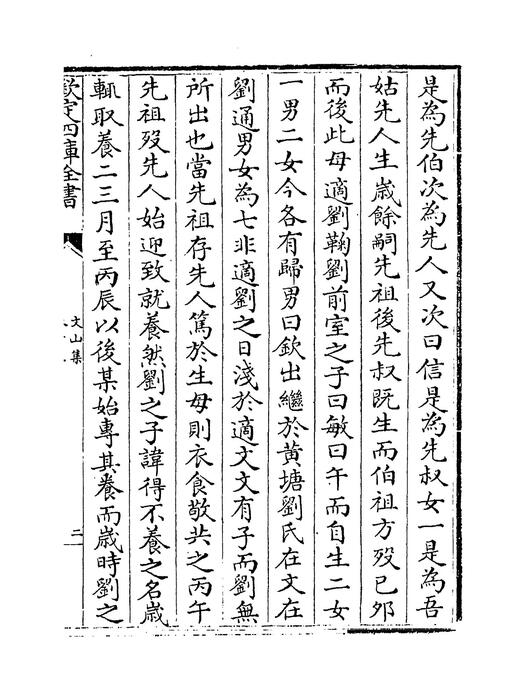 是為先伯次為先人又次曰信是為先叔女一是為吾
姑先人生歳餘嗣先祖後先叔既生而伯祖方歿已夘
而後此母適劉鞠劉前室之子曰敏曰午而自生二女
一男二女今各有歸男曰欽出繼於黄塘劉氏在文在
劉通男女為七非適劉之日淺於適文文有子而劉無
所出也當先祖存先人篤於生母則衣食敬共之丙午
先祖歿先人始迎致就養然劉之子諱得不養之名歳
輒取養二三月至丙辰以後某始專其養而歳時劉之
欽定四庫全書
文山集
二